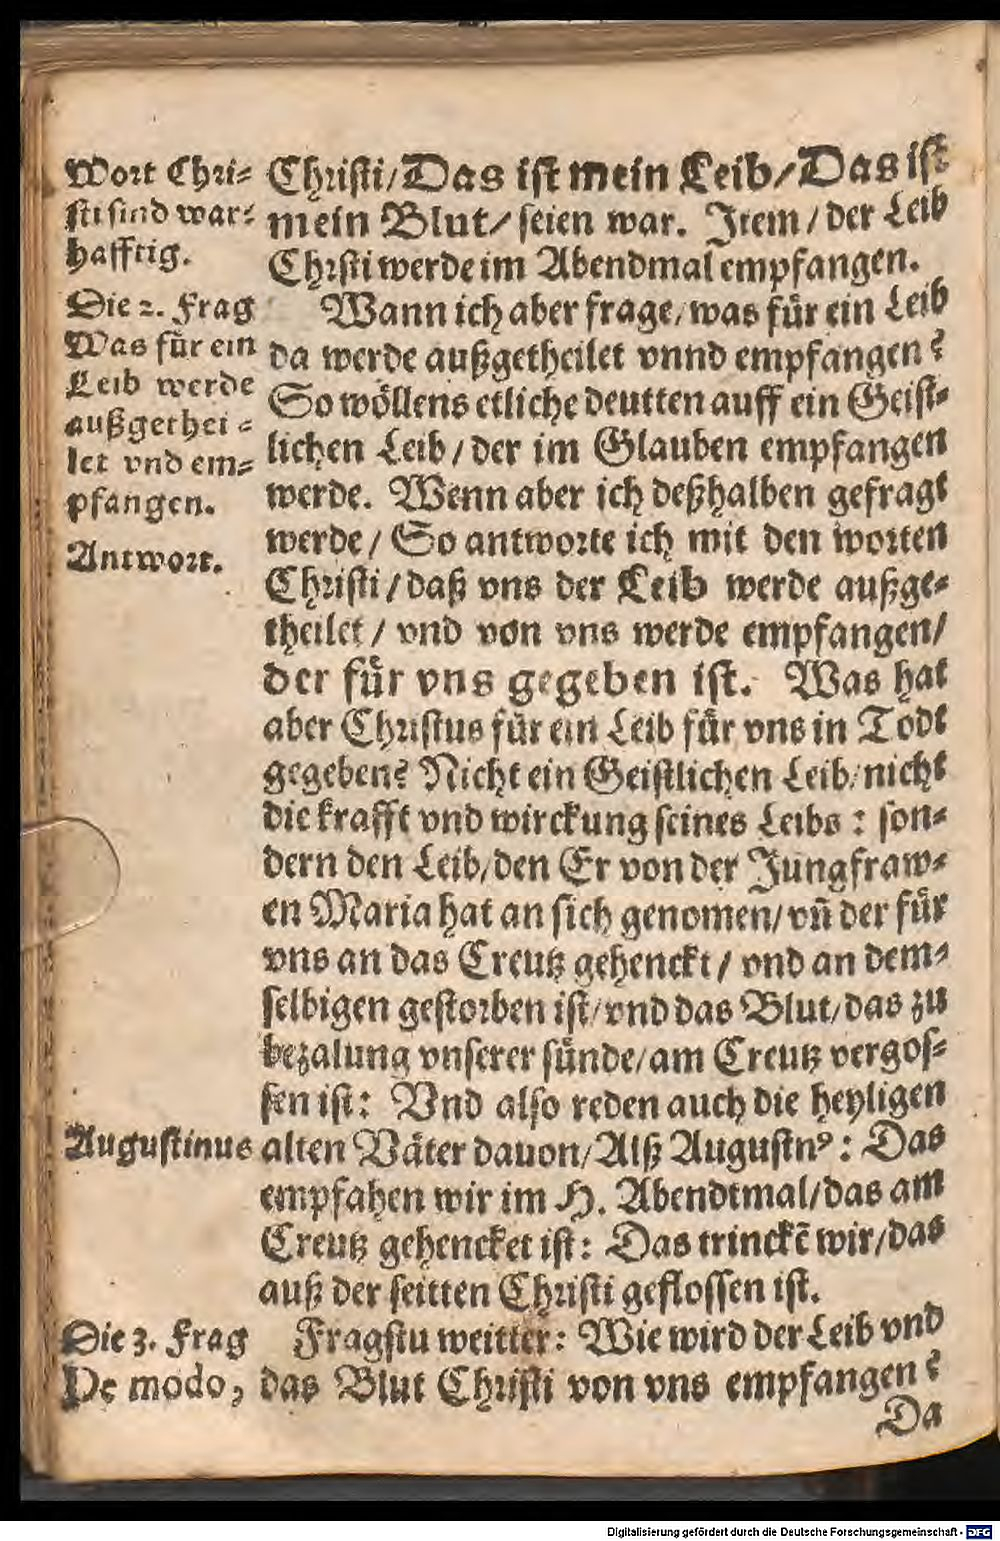 Wort Chri-
sti sind war-
hafftig.
Die 2. Frag
Was für ein
Leib werde
außgethei-
let vnd em-
pfangen.
Antwort.
Christi/Das ist mein Leib/Das ist
mein Blut/ seien war. Item/der Leib
Chrsti werde im Abendmal empfangen.
Wann ich aber frage/was für ein Leib
da werde außgetheilet vnnd empfangen?
So wöllens etliche deutten auff ein Geist-
lichen Leib/der im Glauben empfangen
werde. Wenn aber ich deßhalben gefragt
werde/ So antworte ich mit den worten
Christi/daß vns der Leib werde außge-
theilet/ vnd von vns werde empfangen/
der für vns gegeben ist. Was hat
aber Christus für ein Leib für vns in Todt
gegeben? Nicht ein Geistlichen Leib/nicht
die krafft vnd wirckung seines Leibs: son-
dern den Leib/den Er von der Jungfraw-
en Maria hat an sich genomen/vñ der für
vns an das Creutz gehenckt/ vnd an dem-
selbigen gestorben ist/vnd das Blut/das zu
bezalung vnserer sünde/am Creutz vergos-
sen ist: Vnd also reden auch die heyligen
Augustinus
alten Väter dauon/Alß Augustnꝰ: Das
empfahen wir im H. Abendtmal/das am
Creutz gehencket ist: Das trinckẽ wir/das
auß der seitten Christi geflossen ist.
Die 3. Frag
De modo,
Fragstu weitter: Wie wird der Leib vnd
das Blut Christi von vns empfangen?
Da
Digitalisierung gefördert durch die Deutsche Forschungsgemeinschaft - DFG